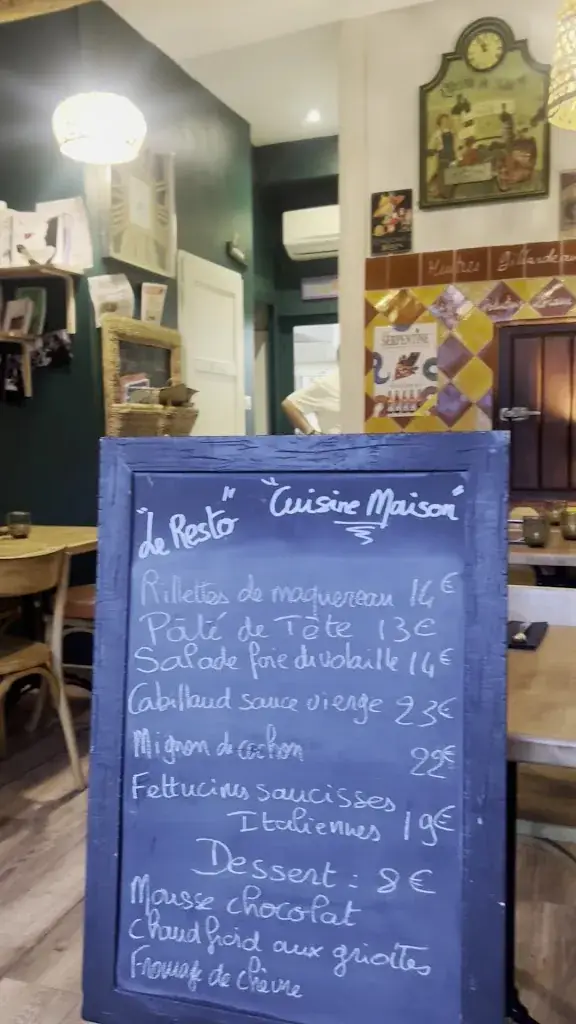 Huîtres Gillardeau
SERPENTINE
"Le Resto" "Cuisine Maison"
Rillettes de maquereau 14€
Pâté de Tête 13€
Salade foie de volaille 14€
Cabillaud sauce vierge 23€
Mignon de cochon 22€
Fettucines saucisses
Italiennes 19€
Dessert : 8€
Mousse chocolat
Chaud froid aux griottes
Fromage de chèvre